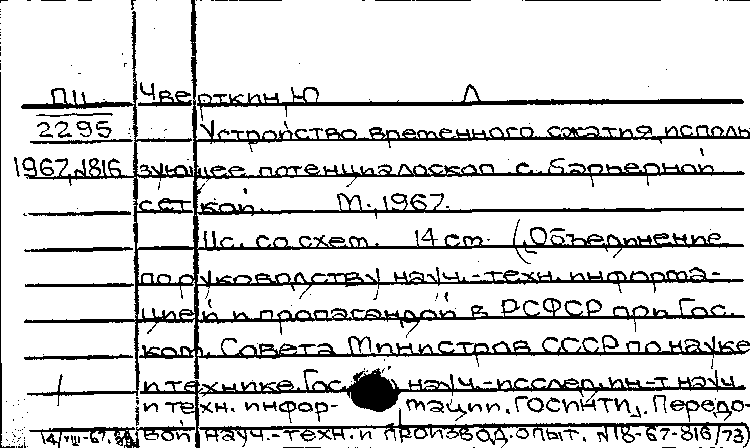 ПЦ Чверткин, Ю Л
2295 Устройство временного сжатия, исполь
1967, №816 зующее потенциалоскоп с барьерной
сеткой. М., 1967.
11с. со схем. 14 см. (Объединение
по руководству науч.-техн. информа-
цией и пропагандой в РСФСР при Гос.
ком. Совета Министров СССР по науке
и технике. Гос. науч.-исслед. ин-т науч.
и техн. инфор- мации. ГОСИНТИ. Передо-
14/VIII-67. вой науч.-техн. и производ. опыт. №18-67-816/73)